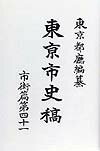 東京都廳編纂
東京市史稿
市街篇第四十一